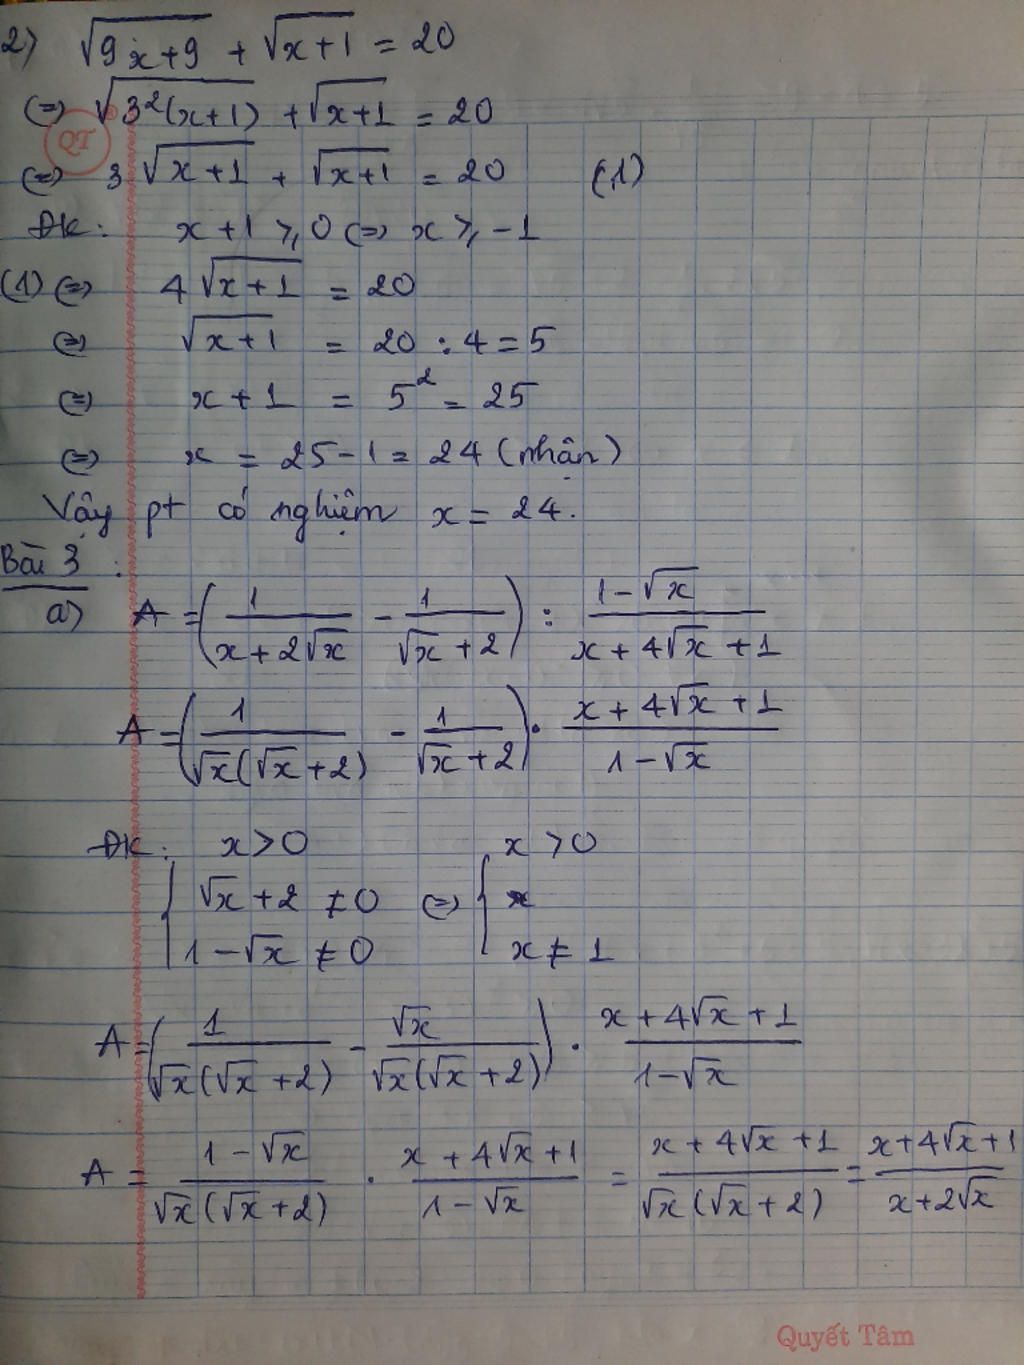 2) √(9x+9) + √(x+1) = 20
(=) √(3²(x+1)) + √(x+1) = 20
QT
(=) 3 √(x+1) + √(x+1) = 20 (1)
ĐK: x + 1 ⩾ 0 (=) x ⩾ -1
(1) (=) 4 √(x+1) = 20
(=) √(x+1) = 20 : 4 = 5
(=) x + 1 = 5² = 25
(=) x = 25 - 1 = 24 (nhận)
Vậy pt có nghiệm x = 24.
Bài 3 :
a) A = (1/(x+2√x) - 1/(√x+2)) : (1-√x)/(x+4√x+1)
A = (1/(√x(√x+2)) - 1/(√x+2)) . (x+4√x+1)/(1-√x)
ĐK: x > 0 x > 0
{ √x + 2 ≠ 0 (=) { x
1 - √x ≠ 0 x ≠ 1
A = (1/(√x(√x+2)) - √x/(√x(√x+2))) . (x+4√x+1)/(1-√x)
A = (1-√x)/(√x(√x+2)) . (x+4√x+1)/(1-√x) = (x+4√x+1)/(√x(√x+2)) = (x+4√x+1)/(x+2√x)
Quyết Tâm